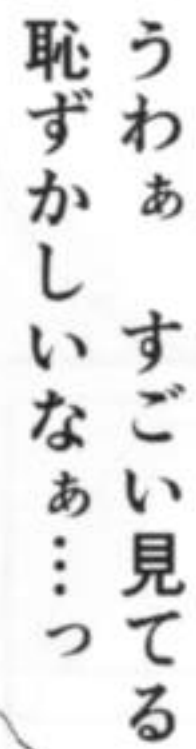 うわぁ　すごい見てる
恥ずかしいなぁ…っ